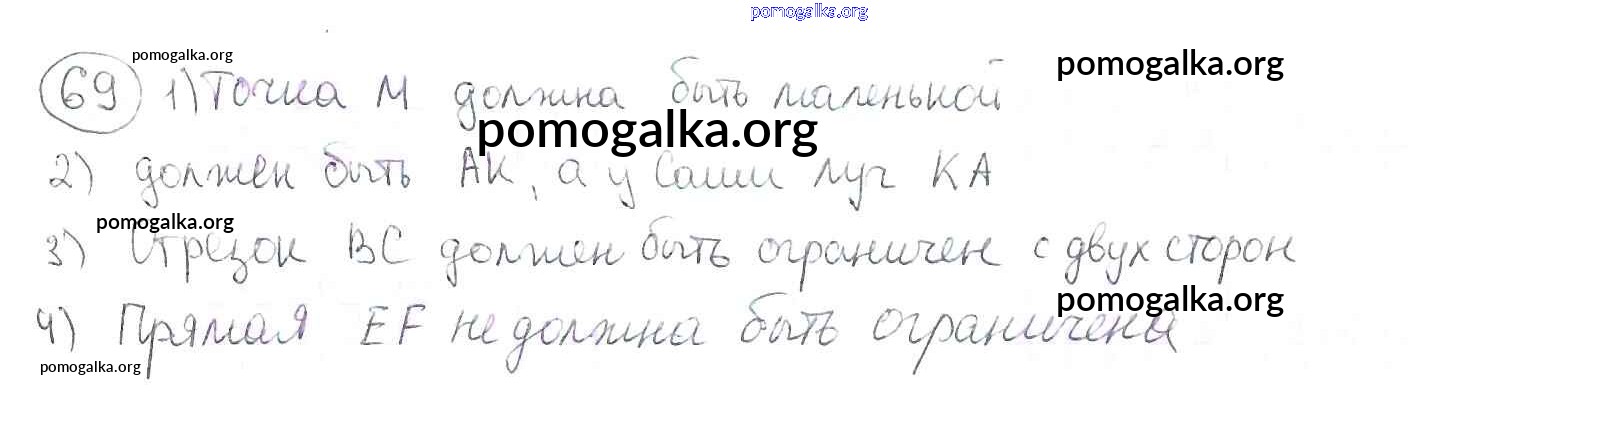 pomogalka.org
pomogalka.org
pomogalka.org
69 1) Точка М должна быть маленькой
pomogalka.org
2) должен быть АК, а у Саши луч КА
pomogalka.org
3) Отрезок ВС должен быть ограничен с двух сторон
pomogalka.org
4) Прямая EF не должна быть ограничена
pomogalka.org